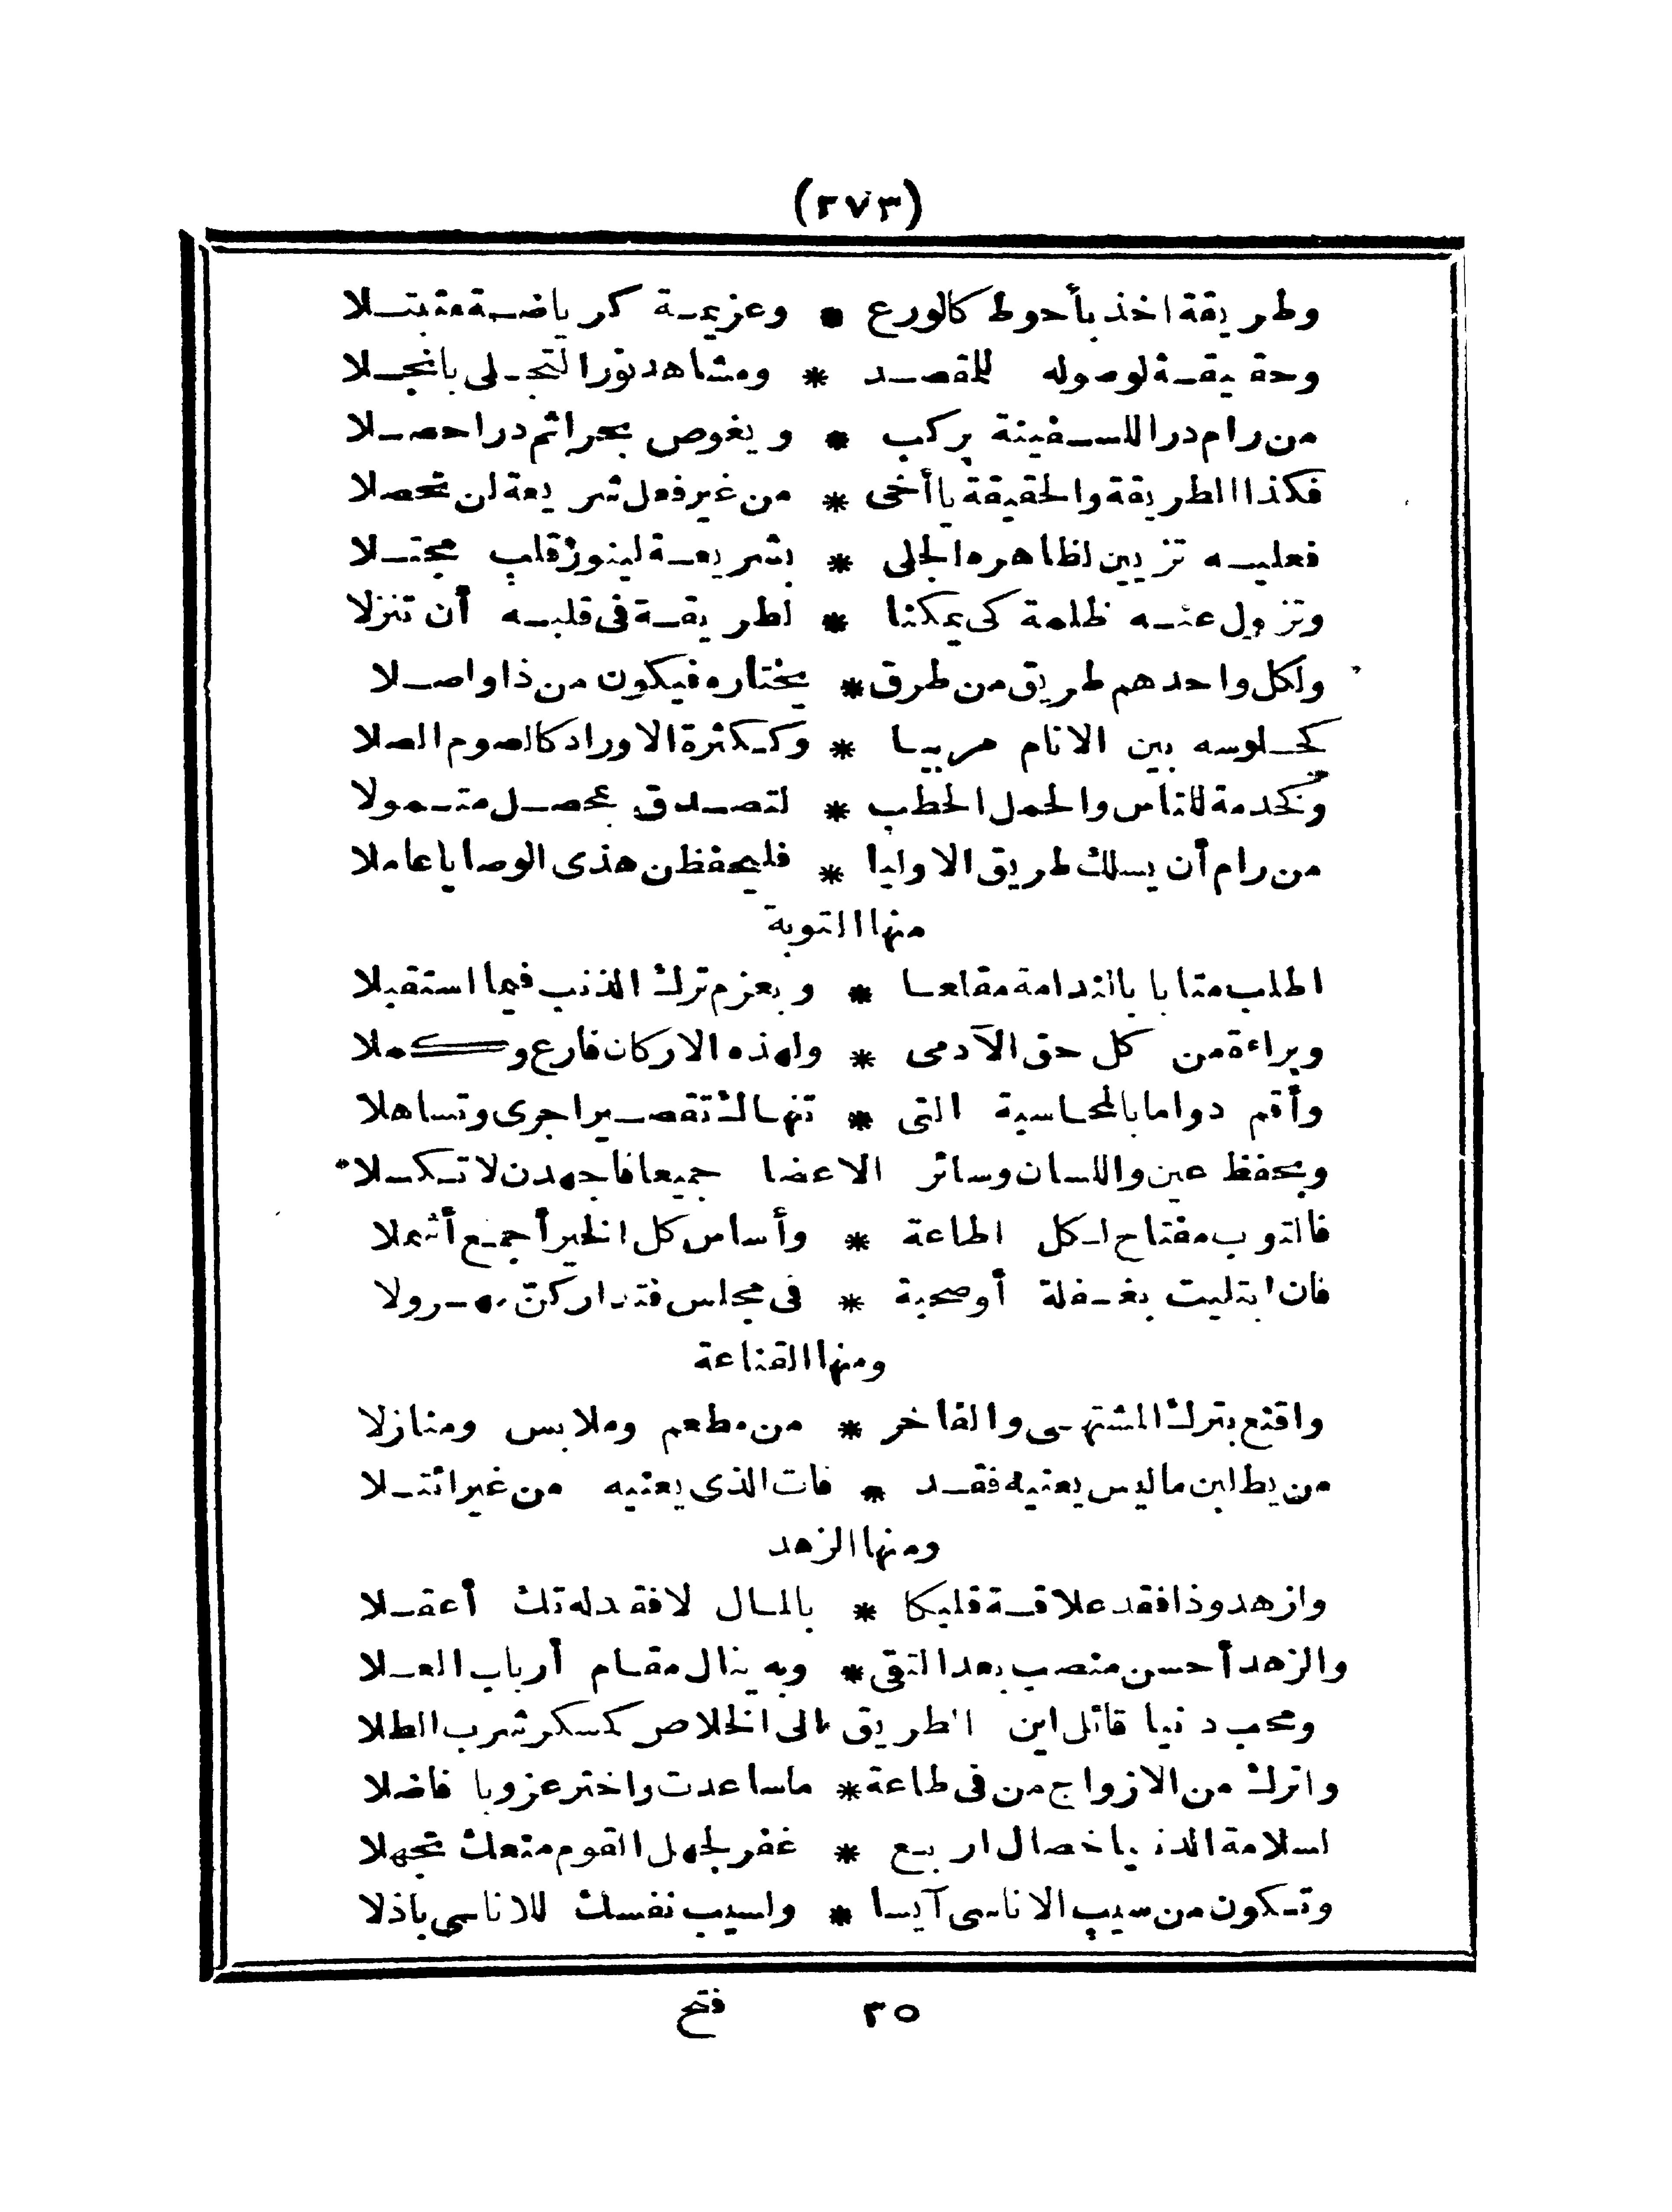 (٢٧٣)
وطريقة اخذ بأحوط كالورع * وعزيمة كرياضة متبتلا
وحقيقة لوصوله للمقصد * ومشاهد نور التجلي بانجلا
من رام درا للسفينة يركب * ويغوص بحرا ثم درا حصلا
فكذا الطريقة والحقيقة يا أخى * من غير فعل شريعة لن تحصلا
فعليه تزيين لظاهره الجلى * بشريعة لينور قلب مجتلا
وتزول عنه ظلمة كى يمكنا * لطريقة فى قلبه أن تنزلا
ولكل واحدهم طريق من طرق * يختاره فيكون من ذا واصلا
كجلوسه بين الانام مربيا * وككثرة الاوراد كالصوم الصلا
وكخدمة للناس والحمل الحطب * لتصدق بمحصل متمولا
من رام أن يسلك طريق الاوليا * فليحفظن هذى الوصايا عاملا
منها التوبة
اطلب متابا بالندامة مقلعا * وبعزم ترك الذنب فيما استقبلا
وبراءة من كل حق الآدمى * ولهذه الاركان فارع وكملا
وأقم دواما بالمحاسبة التى * تنهاك تقصيرا جرى وتساهلا
وبحفظ عين واللسان وسائر الاعضا جميعا فاجهدن لا تكسلا
فالتوب مفتاح لكل اطاعة * وأساس كل الخير أجمع أشملا
فان ابتليت بغفلة أو صحبة * فى مجلس فتداركن مهرولا
ومنها القناعة
واقنع بترك المشتهى والفاخر * من مطعم وملابس ومنازلا
من يطلبن ما ليس يعنيه فقد * فات الذى يعنيه من غير ائتلا
ومنها الزهد
وازهد وذا فقد علاقة قلبكا * بالمال لا فقد له تك أعقلا
والزهد أحسن منصب بعد التقى * وبه ينال مقام أرباب العلا
ومحب دنيا قائل اين الطريق الى الخلاص كسكر شرب الطلا
واترك من الازواج من فى طاعة * ما ساعدت واختر عزوبا فاضلا
لسلامة الدنيا خصال اربع * غفر لجهل القوم منعك تجهلا
وتكون من سيب الاناسى آيسا * ولسيب نفسك للاناسى باذلا
٣٥ فتح